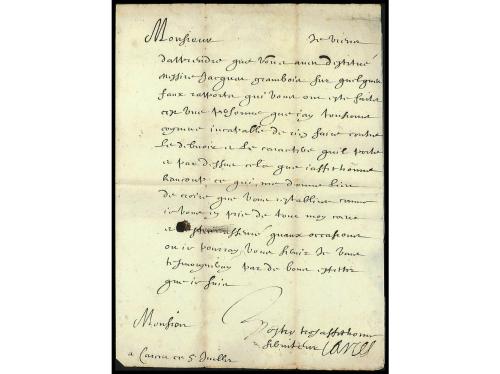 Monsieur Je viens
daprendre que vous aves destitué
messire Jacques grambois sur quelques
faux rapports qui vous ont esté faits
cest une personne que jay tousiours
cognue incapable de rien faire contre
le debvoir et le caractere quil porte
et par dessus cela que iaffectionne
baucoup ce qui me donne lieu
de croire que vous restablires comme
ie vous en prie de tout mon coeur
et quaux occasions
ou ie pourray vous servir Je vous
tesmoigneray par de bons effetz
que ie suis
Monsieur
Vostre tres affectionné
serviteur Carces
a Carces ce 5 Juillet